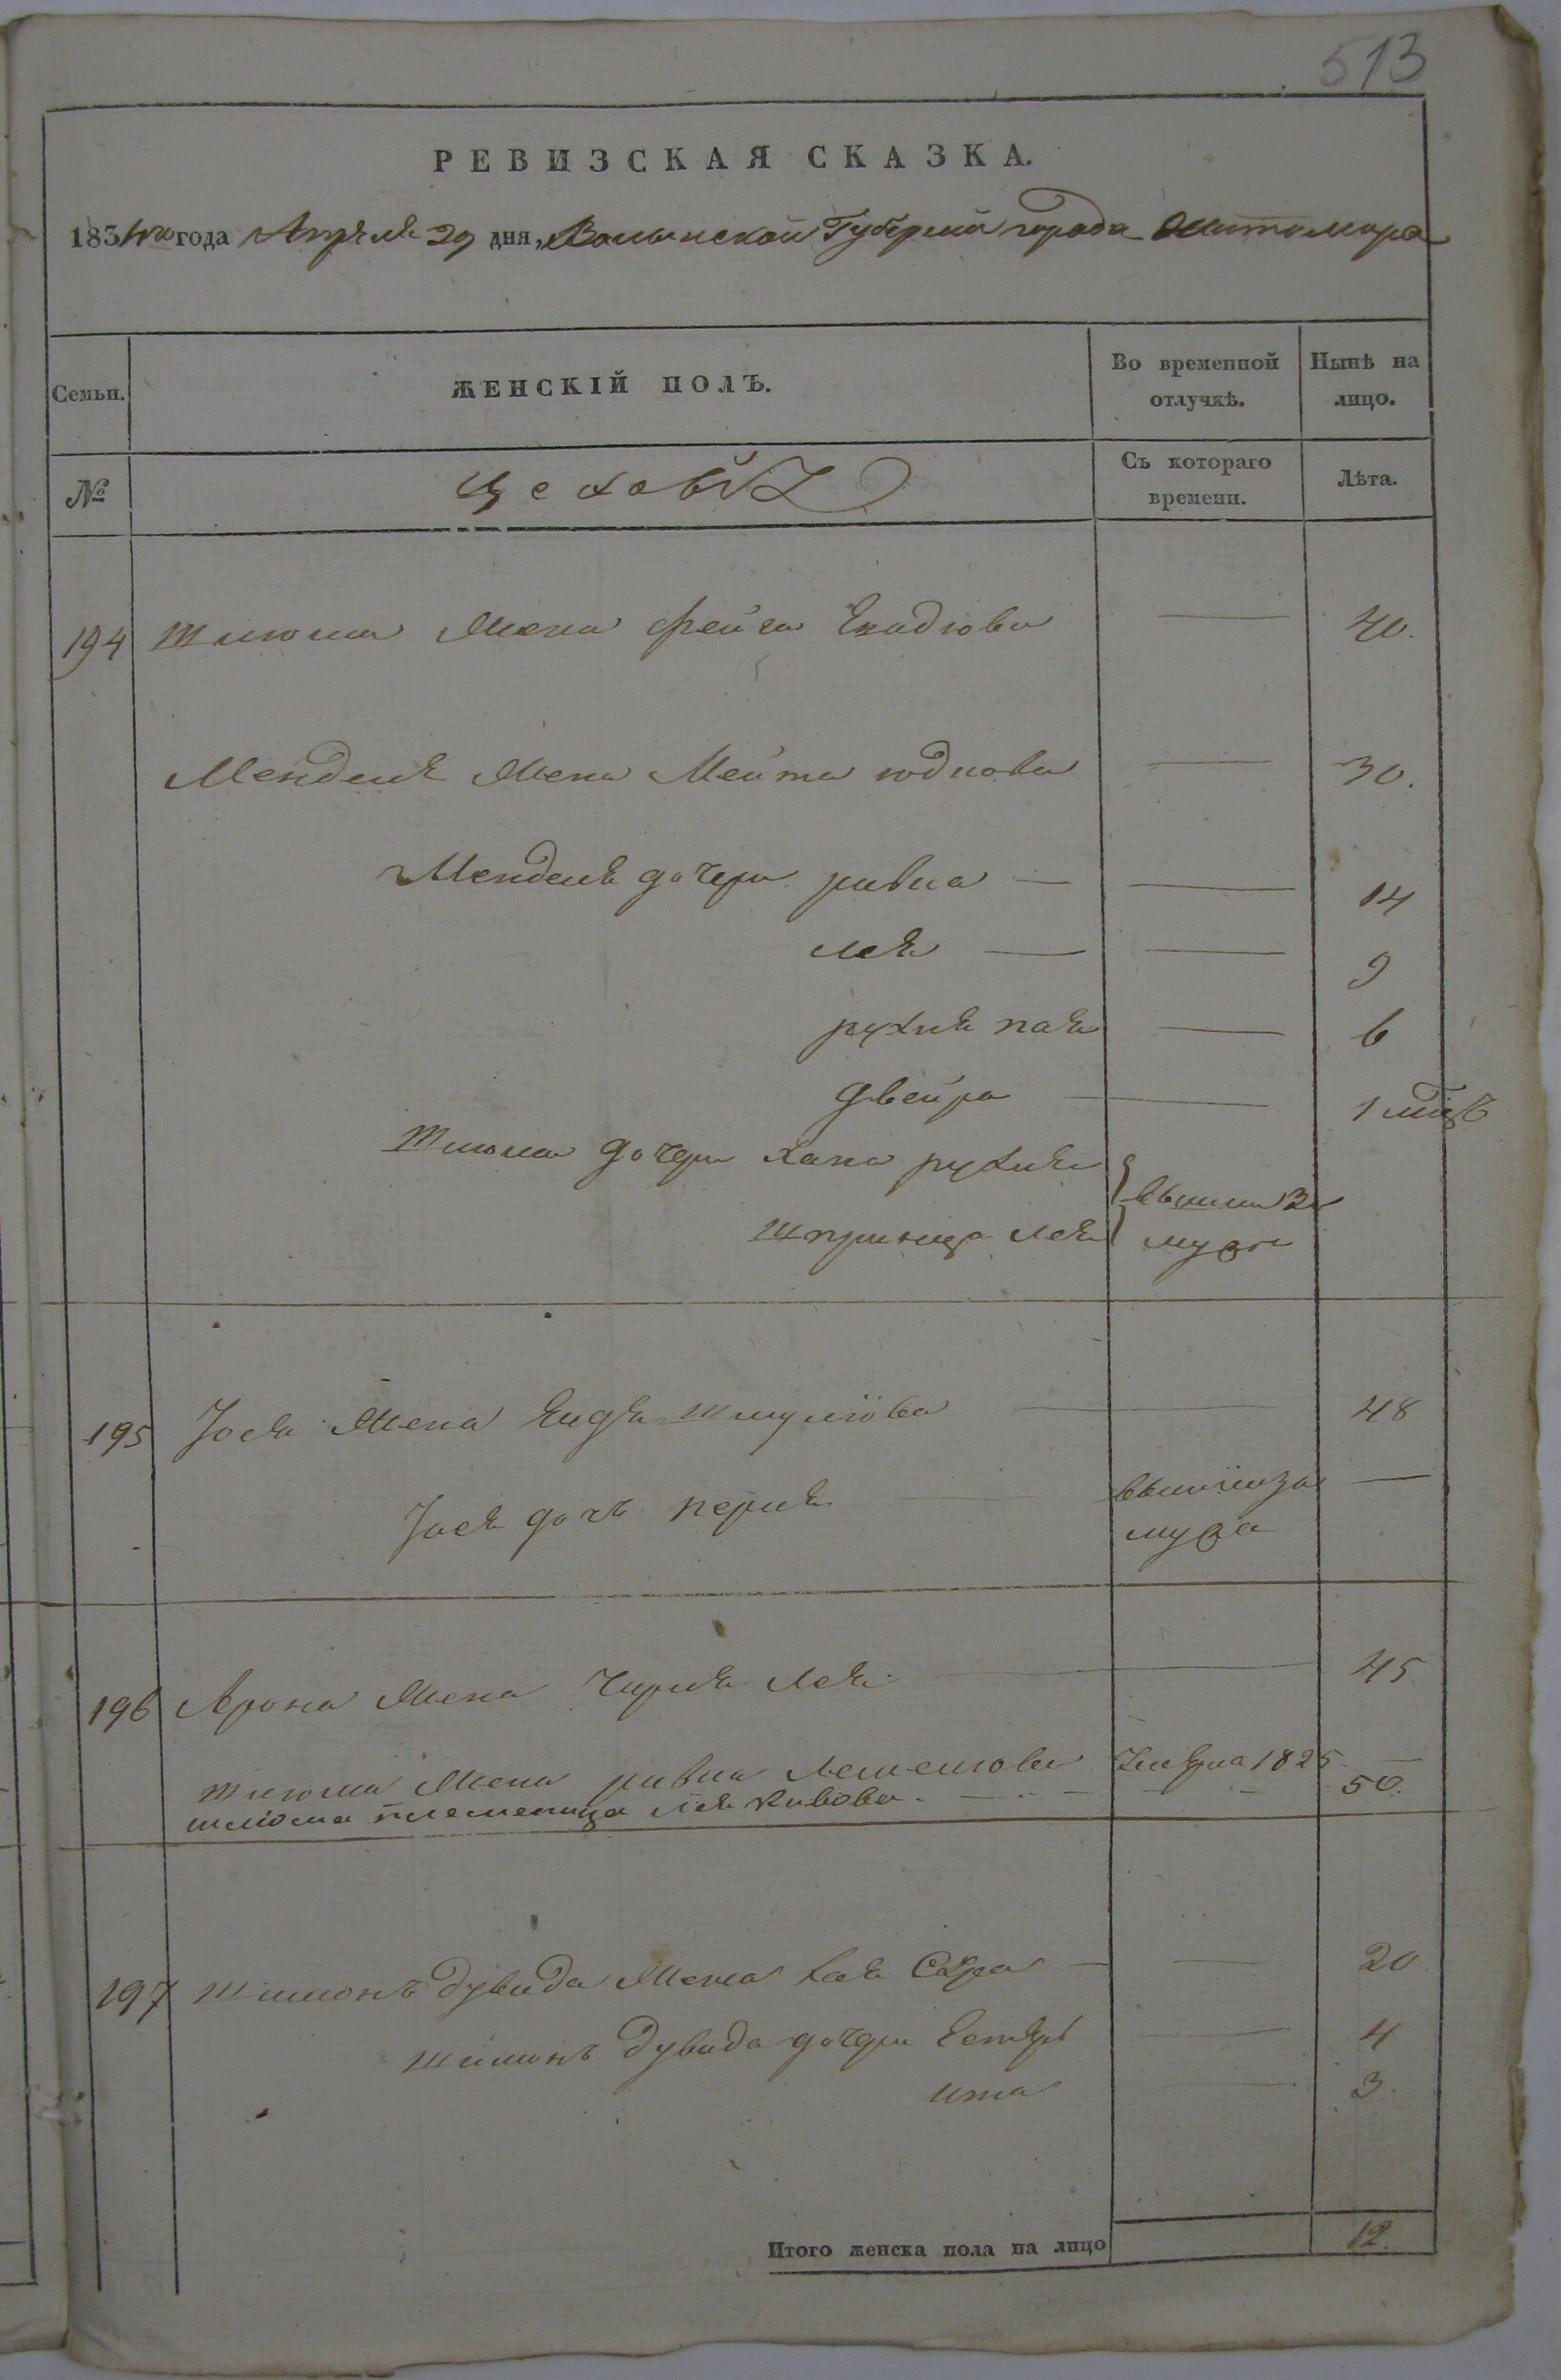 513
РЕВИЗСКАЯ СКАЗКА.
1834го года Апреля 29 дня, Волынской Губернии города Житомира
Семьи. ЖЕНСКІЙ ПОЛЪ. Во временной отлучкѣ. Нынѣ на лицо.
№ цеховых Съ котораго времени. Лѣта.
194 Шлиома жена фейга — 40.
Менделя жена Мейта юдкова — 30.
Менделя дочери ривка — — 14
лея — — 9
рухля пая — 6
двейра — 1 мцъ
Шлиома дочери хана рухля вышли за
шпринца лея мужа
195 Іося жена Ендля шмулиова — 48
Іося дочь перля — вышла за —
мужа
196 Арона жена чарня лея — 45
шлиома жена ривка 1825 —
шлиома племеница лея кивова. — 50.
197 шимонъ дувида жена хая сора — — 20
шимонъ дувида дочери Естеръ — 4
ита — 3.
Итого женска пола на лицо 12.